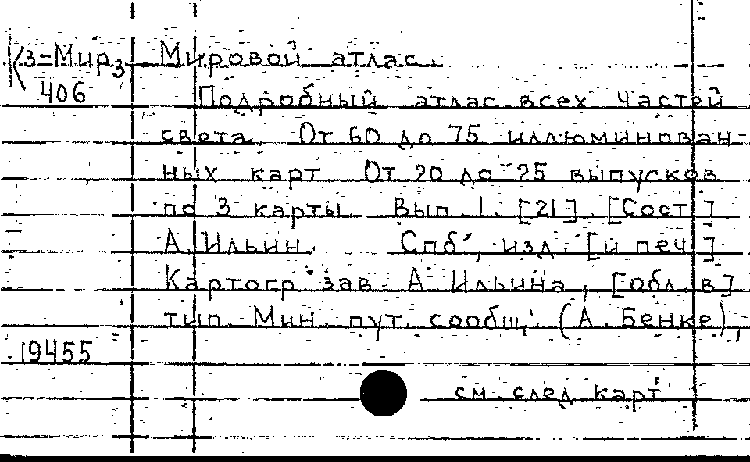 К3-Мир3 Мировой атлас.
406 Подробный атлас всех частей
света. От 60 до 75 иллюминован-
ных карт. От 20 до 25 выпусков
по 3 карты. Вып. 1. [21]. [Сост.]
А. Ильин. Спб, изд. [и печ.]
Картогр. зав. А. Ильина, [обл. в]
тип. Мин. пут. сообщ. (А. Бенке),
19455
см. след. карт.